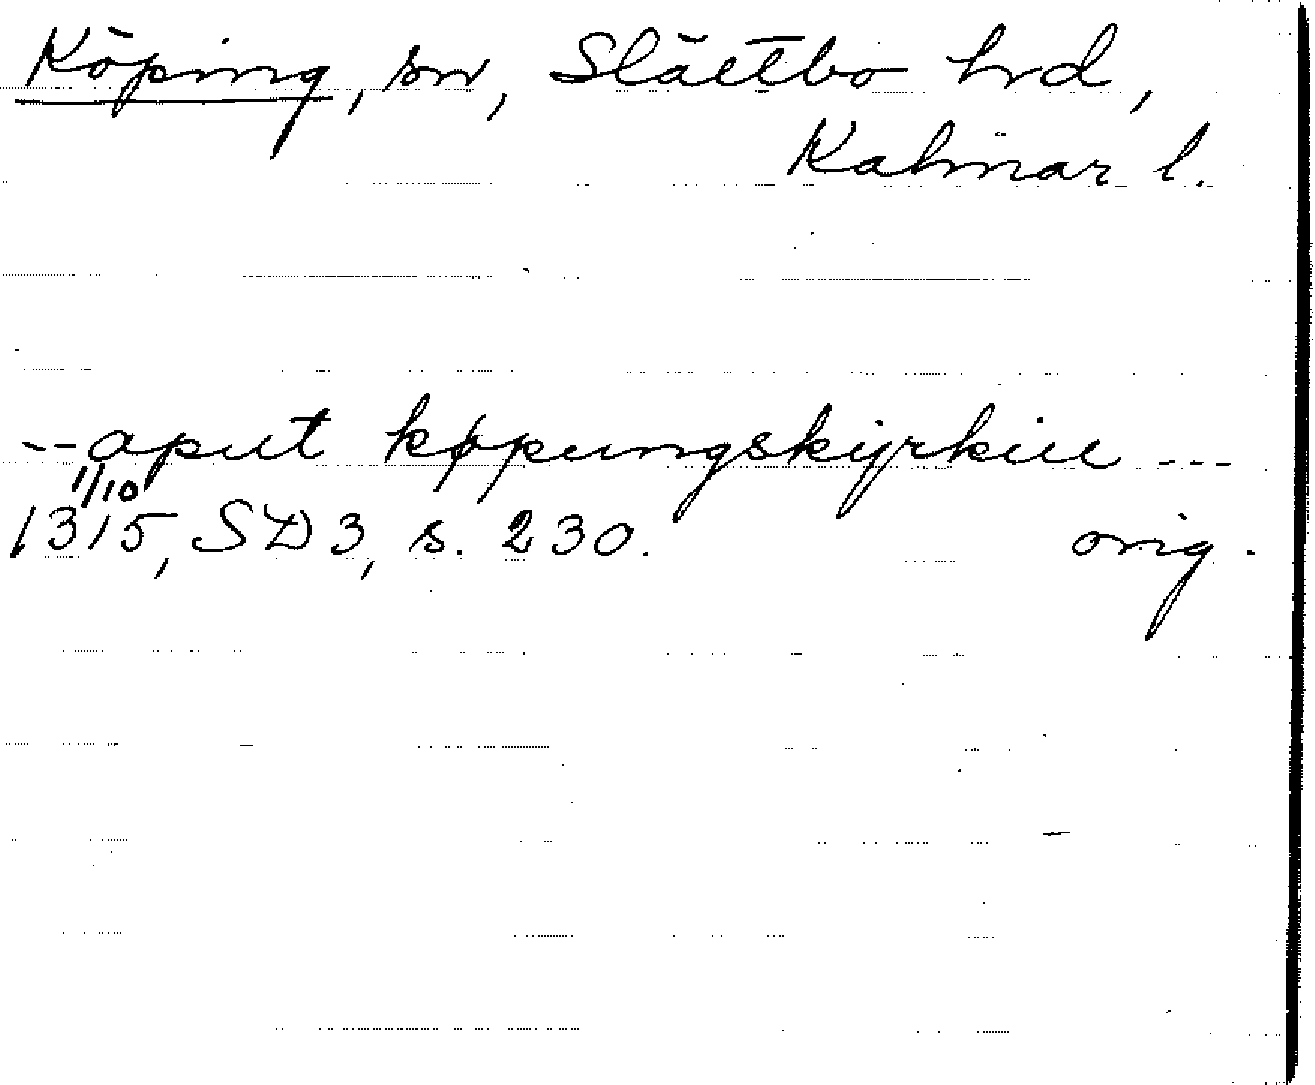 Köping, sn, Slättbo hrd,
Kalmar l.
--aput køpungskyrkiu ---
1/10
1315, SD3, s. 230. orig.